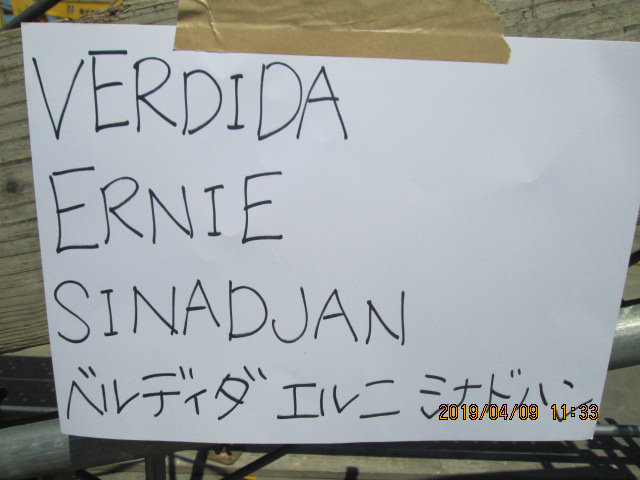 VERDIDA
ERNIE
SINADJAN
ベルディダ エルニ ミナドハン
2019/04/09 11:33